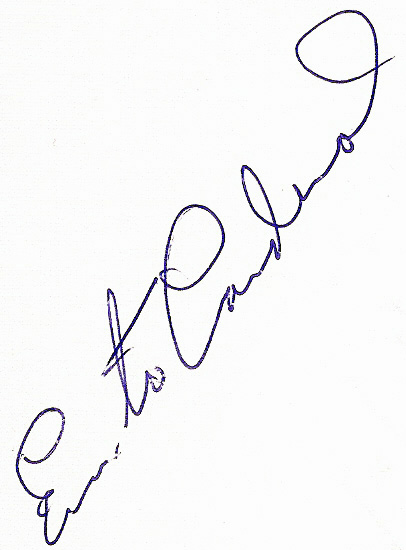 Ernesto Cardenal